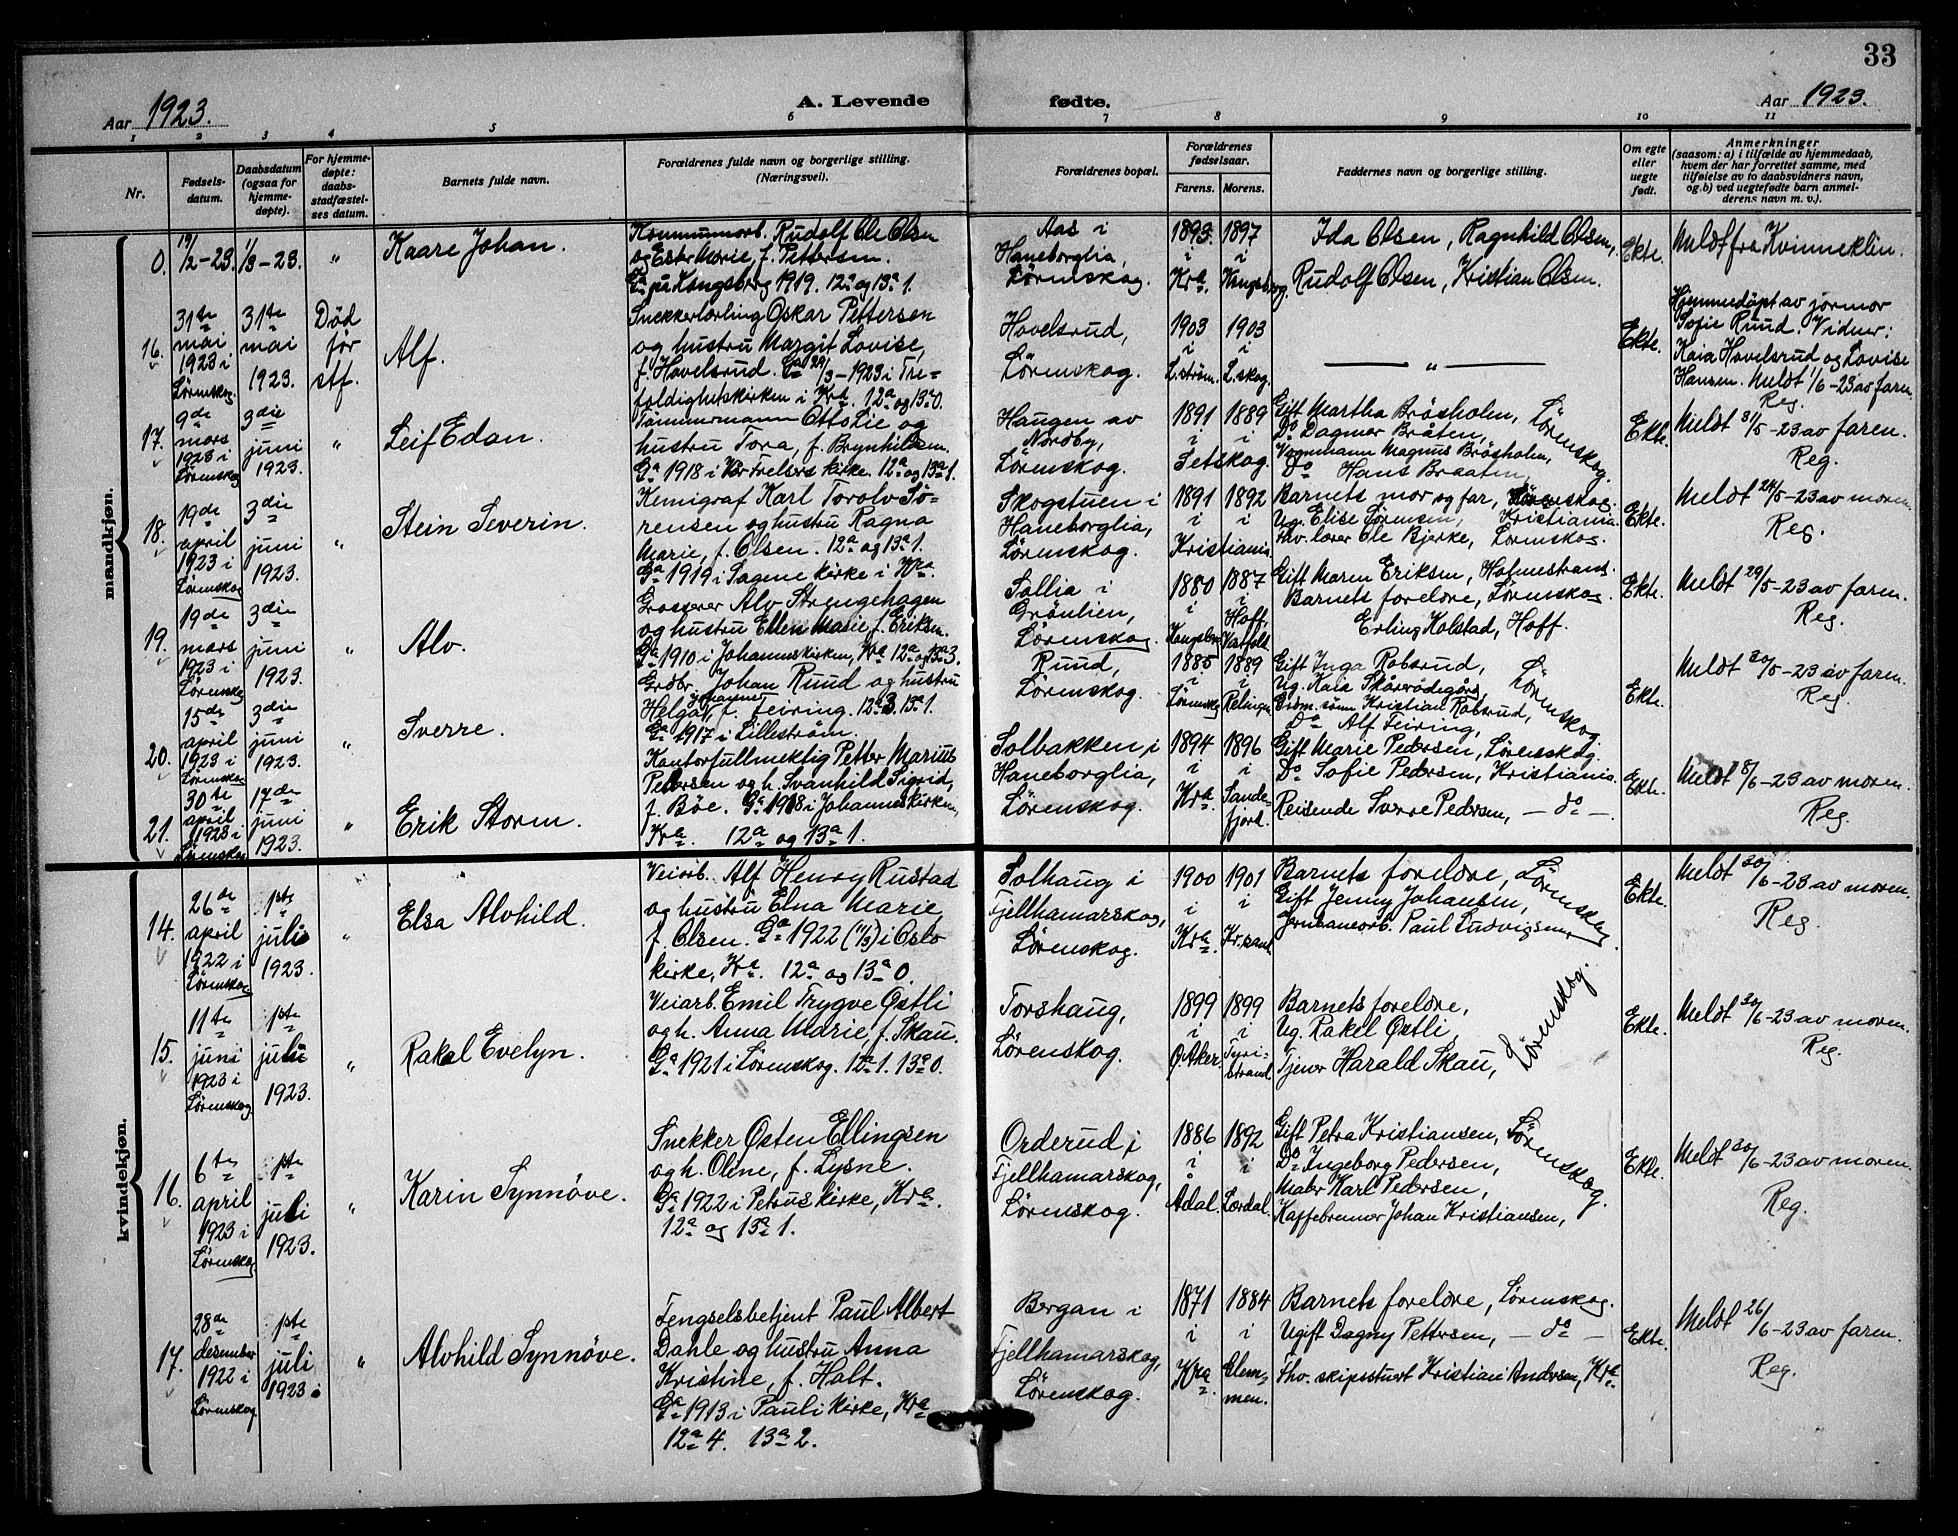 33
Aar 1923.
A. Levende
fødte.
Aar 1923.
1 2 3 4 5 6 7 8 9 10 11
Nr.
Fødsels-
datum.
Daabsdatum
(ogsaa for
hjemme-
døpte).
For hjemme-
døpte:
daabs-
stadfæstel-
ses datum.
Barnets fulde navn.
Forældrenes fulde navn og borgerlige stilling.
(Næringsvei).
Forældrenes bopæl.
Forældrenes
fødselsaar.
Farens. Morens.
Faddernes navn og borgerlige stilling.
Om egte
eller
uegte
født.
Anmerkninger
(saasom: a) i tilfælde av hjemmedaab,
hvem der har forrettet samme, med
tilføielse av to daabsvidners navn,
og b) ved uegtefødte barn anmel-
derens navn m. v.).
mandkjøn.
0.
19/2-23.
1/3-23.
"
Kaare Johan.
Kommunearb. Rudolf Ole Olsen
og Ester Marie, f. Pettersen.
Ga på Kongsberg 1919. 12a og 13a 1.
Aas i
Haneborglia,
Lørenskog.
1893. i Kra.
1897 i Kongsberg.
Ida Olsen, Ragnhild Olsen,
Rudolf Olsen, Kristian Olsen.
Ekte.
Meldt fra Kvinneklin.
16.
31te
mai
1923 i
Lørenskog
31te
mai
1923.
Død
før
stf.
Alf.
Snekkerlærling Oskar Pettersen
og hustru Margit Lovise,
f. Hovelsrud. Ga 29/3-1923 i Tre-
foldighetskirken i Kra. 12a og 13a 0.
Hovelsrud,
Lørenskog.
1903 i L.strøm.
1903 i L.skog.
— " —
Ekte.
Hjemmedøpt av jormor
Sofie Ruud. Vidner:
Kaia Hovelsrud og Lovise
Hansen. Meldt 1/6-23 av faren.
Reg.
17.
9de
mars
1923 i
Lørenskog
3die
juni
1923.
"
Leif Edan.
Tømmermann Otto Lie og
hustru Tora, f. Brynhildsen.
Ga 1918 i Vår Frelsers kirke. 12a og 13a 1.
Haugen av
Nordby,
Lørenskog.
1891 i
1889 i
Setskog.
Gift Martha Bråsholm,
Do Dagmar Bråten,
Vognmann Magnus Bråsholm,
Do Hans Braaten,
Lørenskog.
Ekte.
Meldt 31/5-23 av faren.
Reg.
18.
19de
april
1923 i
Lørenskog
3die
juni
1923.
"
Stein Severin.
Kemigraf Karl Torolv Sö-
rensen og hustru Ragna
Marie, f. Olsen. 12a og 13a 1.
Ga 1919 i Sagene kirke i Kra.
Skogstuen i
Haneborglia,
Lørenskog.
1891 i
1892 i
Kristiania
Barnets mor og far, Lørenskog.
Ug. Elise Sørensen, Kristiania.
Fhv. lærer Ole Bjerke, Lørenskog.
Ekte.
Meldt 24/5-23 av moren.
Reg.
19.
19de
mars
1923 i
Lørenskog
3die
juni
1923.
"
Alv.
Grosserer Alv Strengehagen
og hustru Ellen Marie, f. Eriksen.
Ga 1910 i Johanneskirken, Kra. 12a og 13a 3.
Sollia i
Grönlien,
Lørenskog.
1880 i Kongsberg
1887 Hoff, Vestfold
Gift Maren Eriksen, Holmestrand.
Barnets foreldre, Lørenskog.
Erling Kolstad, Hoff.
Ekte.
Meldt 29/5-23 av faren.
Reg.
20.
15de
april
1923 i
Lørenskog
3die
juni
1923.
"
Sverre.
Grdbr. Johan Ruud og hustru
Helga Johanne, f. Feiring. 12a 3. 13a 1.
Ga 1917 i Lilleström.
Ruud,
Lørenskog.
1885 i Lørenskog
1889 i Relingen
Gift Inga Robsrud,
Ug. Kaia Skårerødegård,
Grdm. sønn Kristian Robsrud,
Do Alf Feiring,
Lørenskog.
Ekte.
Meldt 30/5-23 av faren.
Reg.
21.
30te
april
1923 i
Lørenskog
17de
juni
1923.
"
Erik Storm.
Kontorfullmektig Petter Marius
Petersen og h. Svanhild Sigrid,
f. Böe. Ga 1918 i Johanneskirken,
Kra. 12a og 13a 1.
Solbakken, i
Haneborglia,
Lørenskog.
1894 i Kra.
1896 i Sande-
fjord.
Gift Marie Pedersen, Lørenskog.
Do Sofie Pedersen, Kristiania.
Reisende Sverre Pedersen, — do —.
Ekte.
Meldt 8/6-23 av moren.
Reg.
kvindekjøn.
14.
26de
april
1922 i
Lørenskog
1ste
juli
1923.
"
Elsa Alvhild.
Veiarb. Alf Henry Rustad
og hustru Elna Marie,
f. Olsen. Ga 1922 (11/3) i Oslo
kirke, Kra. 12a og 13a 0.
Solhaug i
Fjellhamarskog,
Lørenskog.
1900 i Kra.
1901 i Kr.sand.
Barnets forelore,
Gift Jenny Johansen,
Jernbanearb. Paul Ludvigsen,
Lørenskog
Ekte.
Meldt 30/6-23 av moren.
Reg.
15.
11te
juni
1923 i
Lørenskog
1ste
juli
1923.
"
Rakel Evelyn.
Veiarb. Emil Trygve Østli
og h. Anna Marie, f. Skau.
Ga 1921 i Lørenskog. 12a 1. 13a 0.
Torshaug,
Lørenskog.
1899 i Ø. Aker.
1899 i Tyri-
strand.
Barnets forelore,
Ug. Rakel Østli,
Tjener Harald Skau,
Lørenskog.
Ekte.
Meldt 30/6-23 av moren.
Reg.
16.
6te
april
1923 i
Lørenskog
1ste
juli
1923.
"
Karin Synnöve.
Snekker Østen Ellingsen
og h. Oline, f. Lysne.
Ga 1922 i Petrus kirke, Kra.
12a og 13a 1.
Orderud i
Fjellhamarskog,
Lørenskog.
1886 i Adal.
1892 i Lærdal.
Gift Petra Kristiansen,
Do Ingeborg Pedersen,
Maler Karl Pedersen,
Kaffebrenner Johan Kristiansen,
Lørenskog.
Ekte.
Meldt 30/6-23 av moren.
Reg.
17.
28de
desember
1922 i
Lørenskog
1ste
juli
1923
"
Alvhild Synnöve.
Fengselsbetjent Paul Albert
Dahle og hustru Anna
Kristine, f. Holt.
Ga 1913 i Pauli kirke, Kra
12a 4. 13a 2.
Bergan i
Fjellhamarskog,
Lørenskog.
1871 i Kra.
1884 i Glem-
men.
Barnets forelore, Lørenskog.
Ugift Dagny Pettersen, — do —
Fhv. skipsstuert Kristian Andersen, Kra.
Ekte.
Meldt 26/6-23 av faren.
Reg.